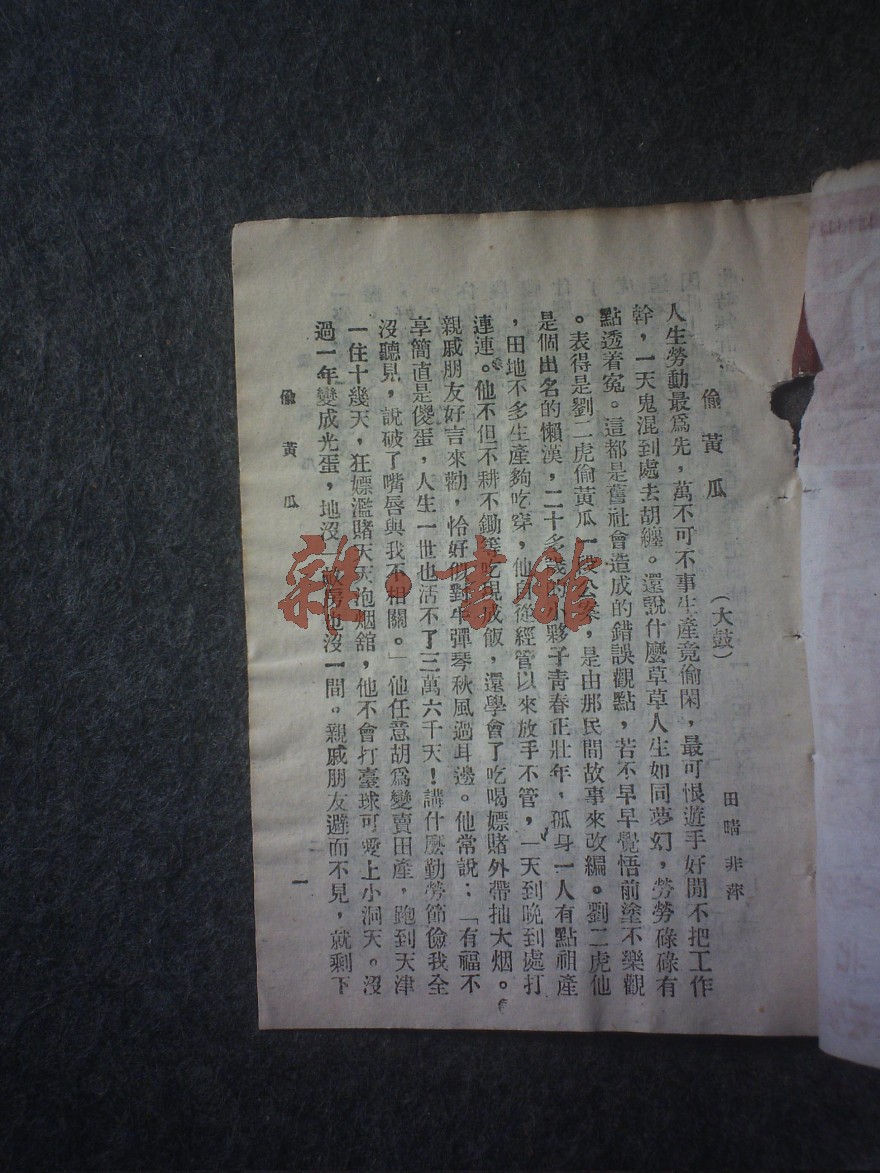 偷黃瓜 (大鼓) 田晴 非萍
人生勞動最爲先，萬不可不事生產竟偷閑，最可恨遊手好閒不把工作
幹，一天鬼混到處去胡纏。還說什麼草草人生如同夢幻，勞勞碌碌有
點透着寃。這都是舊社會造成的錯誤觀點，若不早早覺悟前塗不樂觀
。表得是劉二虎偷黃瓜一段公案，是由那民間故事來改編。劉二虎他
是個出名的懶漢，二十多歲的小夥子靑春正壯年，孤身一人有點祖產
，田地不多生產夠吃穿，他自從經管以來放手不管，一天到晚到處打
連連。他不但不耕不鋤等吃現成飯，還學會了吃喝嫖賭外帶抽大烟。
親戚朋友好言來勸，恰好似對牛彈琴秋風過耳邊。他常說：「有福不
享簡直是傻蛋，人生一世也活不了三萬六千天！講什麼勤勞節儉我全
沒聽見，說破了嘴唇與我不相關。」他任意胡爲變賣田產，跑到天津
一住十幾天，狂嫖濫賭天天泡烟舘，他不會打臺球可愛上小洞天。沒
過一年變成光蛋，地沒一畝房也沒一間。親戚朋友避而不見，就剩下
偷黃瓜
一
雜·書館